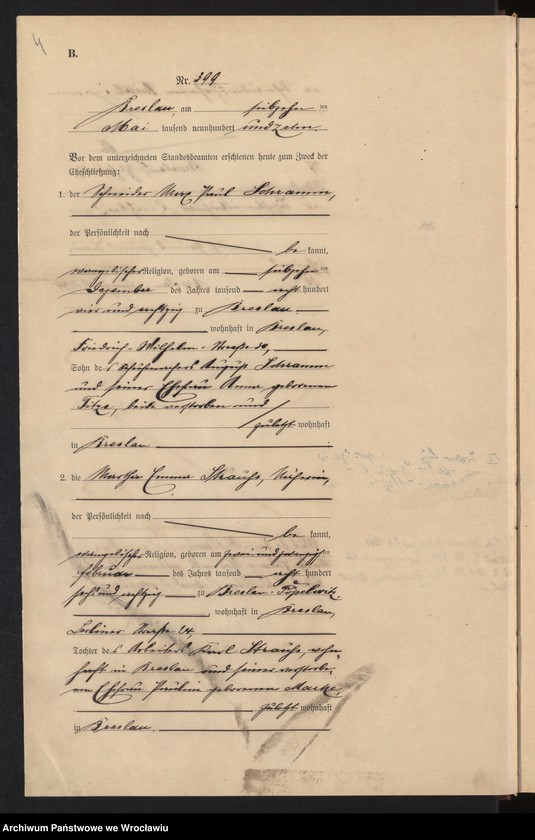 4
B.
Nr. 399
Breslau, am siebzehn ten
Mai tausend neunhundert und zehn.
Vor dem unterzeichneten Standesbeamten erschienen heute zum Zweck der
Eheschließung:
1. der Schneider Max Paul Schramm,
der Persönlichkeit nach
be kannt,
evangelischer Religion, geboren am siebzehn ten
Dezember des Jahres tausend acht hundert
vier und achtzig zu Breslau
, wohnhaft in Breslau,
Friedrich-Wilhelm-Straße
Sohn des Schuhmachers August Schramm
und seiner Ehefrau Anna geborenen
Titze, beide verstorben und
zuletzt wohnhaft
in Breslau
2. die Martha Emma Strauß, Näherin,
der Persönlichkeit nach
be kannt,
evangelischer Religion, geboren am zwei und zwanzig ten
Februar des Jahres tausend acht hundert
sechs und achtzig zu Breslau-Pöpelwitz,
, wohnhaft in Breslau,
Berliner Straße 24,
Tochter des Arbeiters Karl Strauß, wohn-
haft in Breslau und seiner verstorbe-
nen Ehefrau Pauline geborenen
zuletzt wohnhaft
in Breslau
Archiwum Państwowe we Wrocławiu